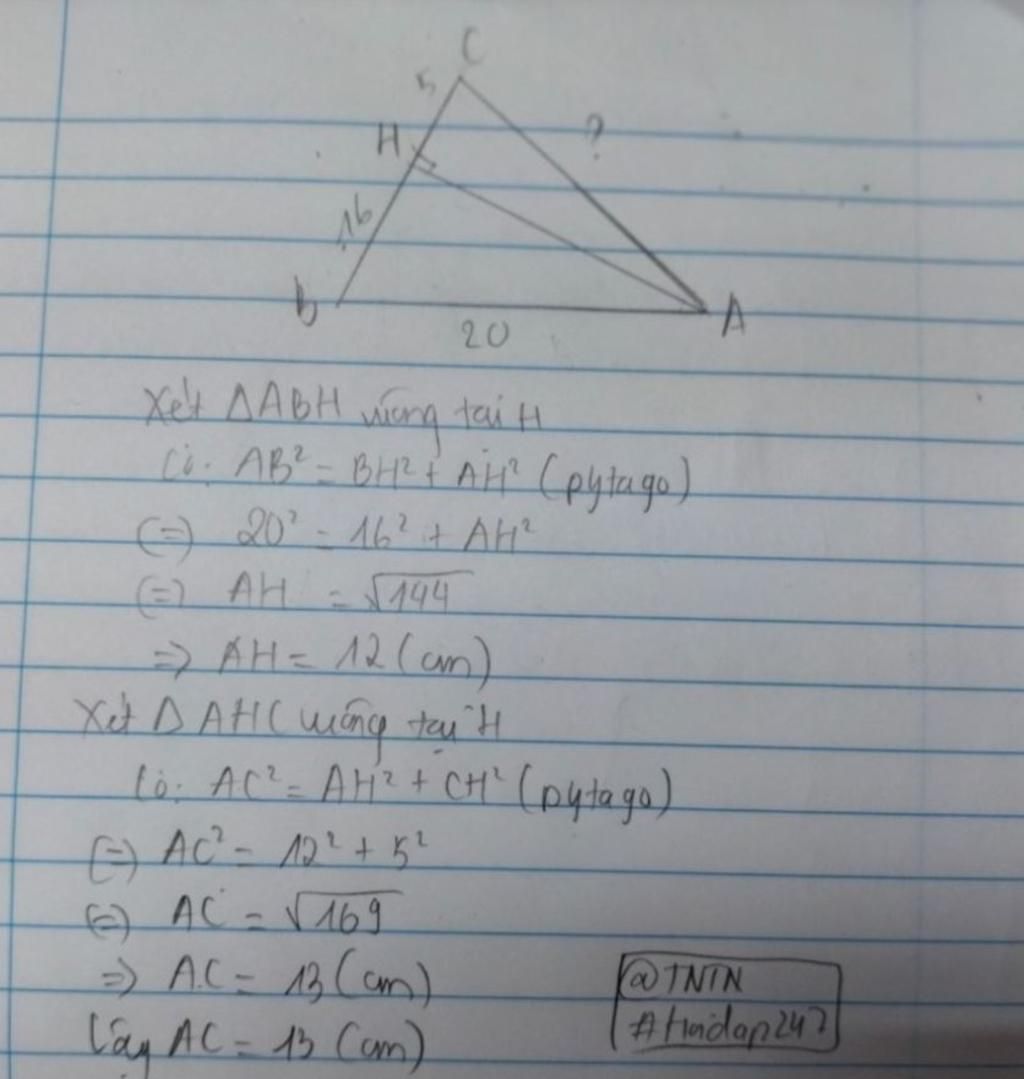 C
5
?
H
16
B
A
20
Xét ΔABH vuông tại H
Có: AB² = BH² + AH² (pytago)
(=) 20² = 16² + AH²
(=) AH = √144
=> AH = 12 (cm)
Xét Δ AHC vuông tại H
Có: AC² = AH² + CH² (pytago)
(=) AC² = 12² + 5²
(=) AC = √169
=> AC = 13 (cm)
Vậy AC = 13 (cm)
@TNTN
#Hoidap247